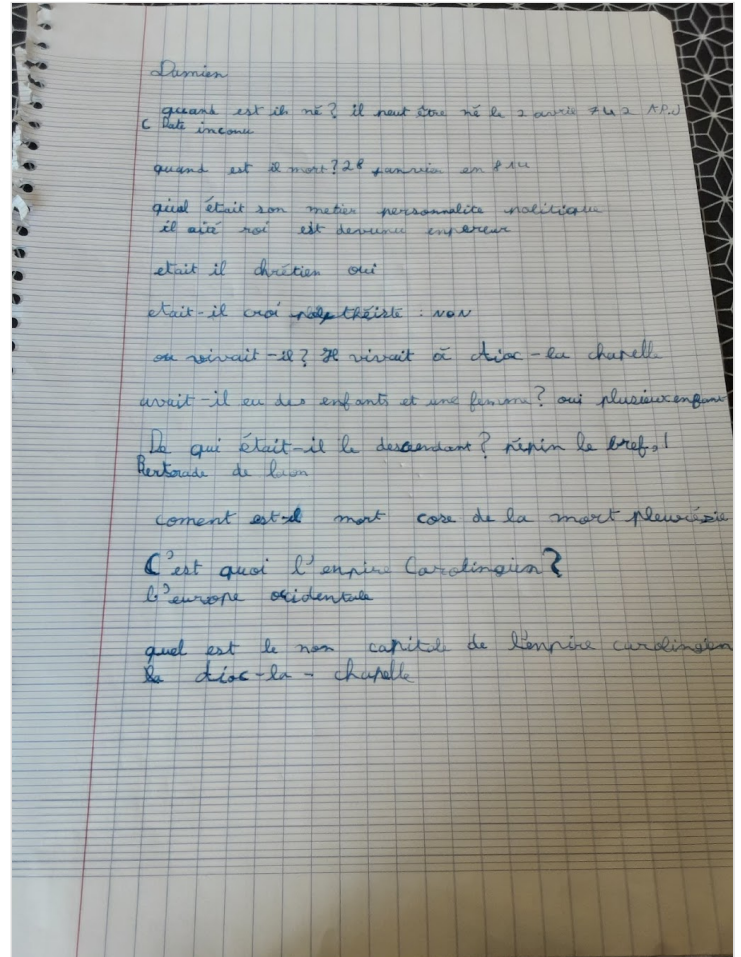 Damien
quand est il né? il peut être né le 2 avril 742 AP.J
C Date inconu
quand est il mort? 28 janvier en 814
quel était son metier personnalite politique
il aité roi est devenu enpereur
etait il chrétien oui
etait-il croi polythéiste : NON
ou vivait-il? Il vivait à Aix-la chapelle
avait-il eu des enfants et une femme? oui plusieux enfant
De qui était-il le descendant? pépin le bref,
Bertorade de laon
coment est-il mort cose de la mort pleurésie
C'est quoi l'enpire Carolingien?
l'europe ocidentale
quel est le non capital de l'enpire carolingien
la Aix-la-chapelle